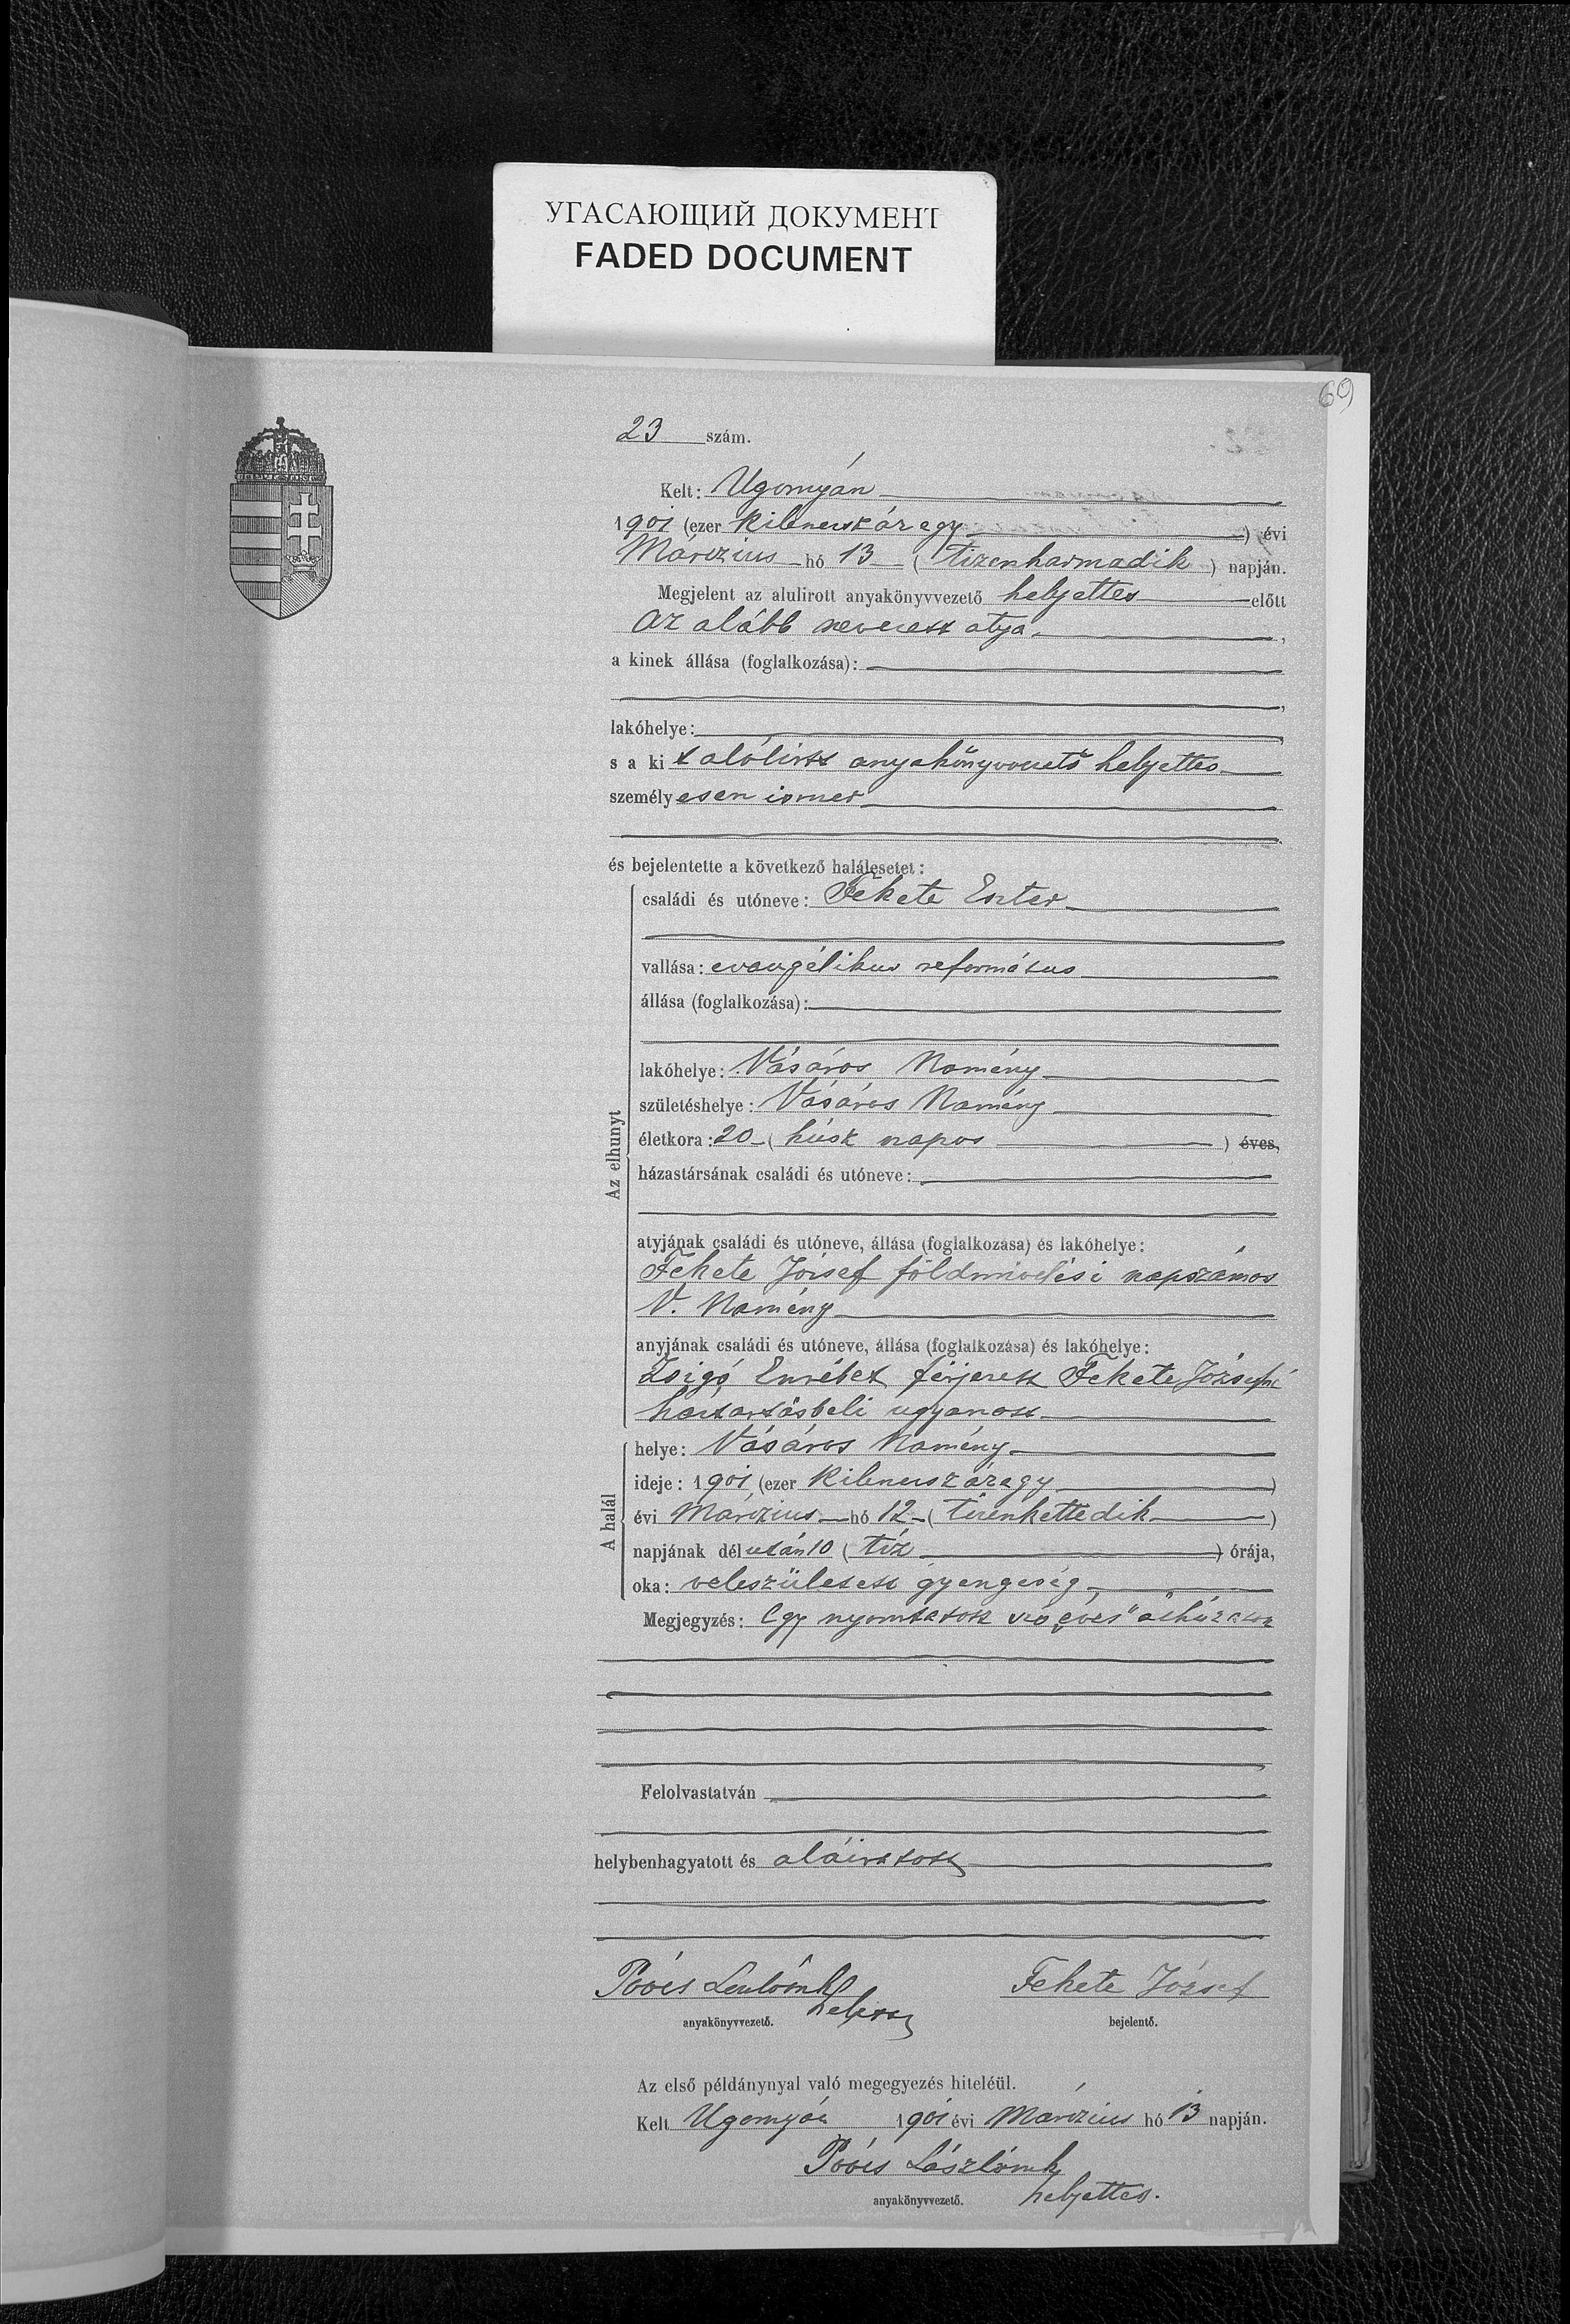 УГАСАЮЩИЙ ДОКУМЕНТ
FADED DOCUMENT
69
23 szám.
Kelt: Ugornyán
1901 (ezer kilenczszázegy) évi
Márczius hó 13 (tizenharmadik) napján.
Megjelent az alulirott anyakönyvvezető helyettes előtt
az alább nevezett atya,
a kinek állása (foglalkozása):
lakóhelye:
s a kit alólirott anyakönyvvezető helyettes
személyesen ismer
és bejelentette a következő halálesetet:
Az elhunyt
családi és utóneve: Fekete Eszter
vallása: evangélikus református
állása (foglalkozása):
lakóhelye: Vásáros Namény
születéshelye: Vásáros Namény
életkora: 20 (húsz napos) éves,
házastársának családi és utóneve:
atyjának családi és utóneve, állása (foglalkozása) és lakóhelye:
Fekete József földmivelési napszámos
V. Namény
anyjának családi és utóneve, állása (foglalkozása) és lakóhelye:
Zsigó Erzsébet férjezett Fekete Józsefné
háztartásbeli ugyanott
A halál
helye: Vásáros Namény
ideje: 1901 (ezer kilenczszázegy)
évi Márczius hó 12 (tizenkettedik)
napjának délután 10 (tíz) órája,
oka: veleszületett gyengeség
Megjegyzés: Egy nyomtatott szó „éves" áthúzatott
Felolvastatván
helybenhagyatott és aláiratott
László mk helyettes
Fekete József
anyakönyvvezető.
bejelentő.
Az első példánynyal való megegyezés hiteléül.
Kelt Ugornyán 1901 évi Márczius hó 13 napján.
László mk
anyakönyvvezető. helyettes.